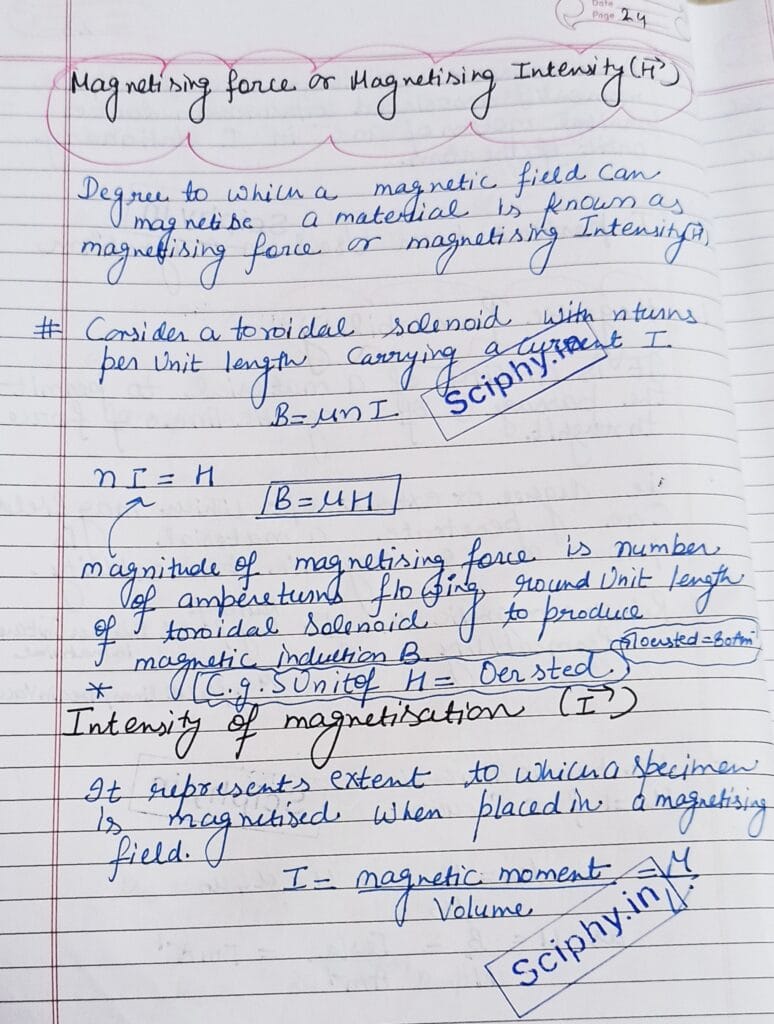 Date
Page 24
Magnetising force or Magnetising Intensity (H→)
Degree to which a magnetic field can
magnetise a material is known as
magnetising force or magnetising Intensity (H→)
# Consider a toroidal solenoid with n turns
per Unit length carrying a current I.
B = μnI
Sciphy.in
nI = H
B = μH
magnitude of magnetising force is number
of ampere turns flowing round Unit length
of toroidal solenoid to produce
magnetic induction B.
* C.g.S Unit of H = Oersted.
Intensity of magnetisation (I→)
It represents extent to which a specimen
is magnetised when placed in a magnetising
field.
I = magnetic moment = M
Volume V
Sciphy.in